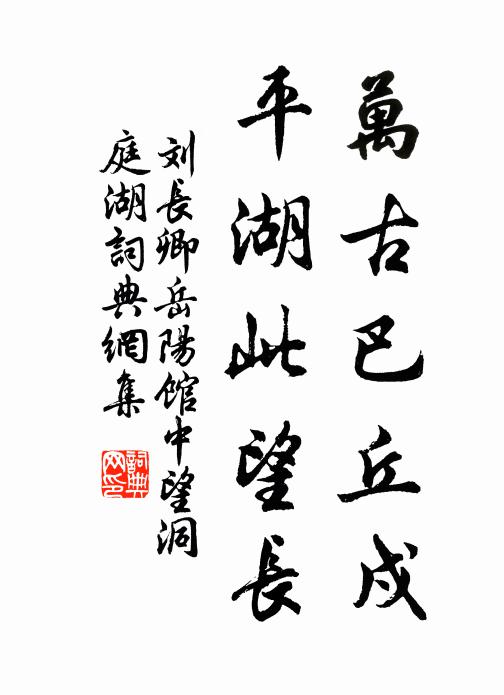 萬古巴丘戍
平湖此望長
刘長卿岳陽館中望洞
庭湖詞典網集
詞典
网印